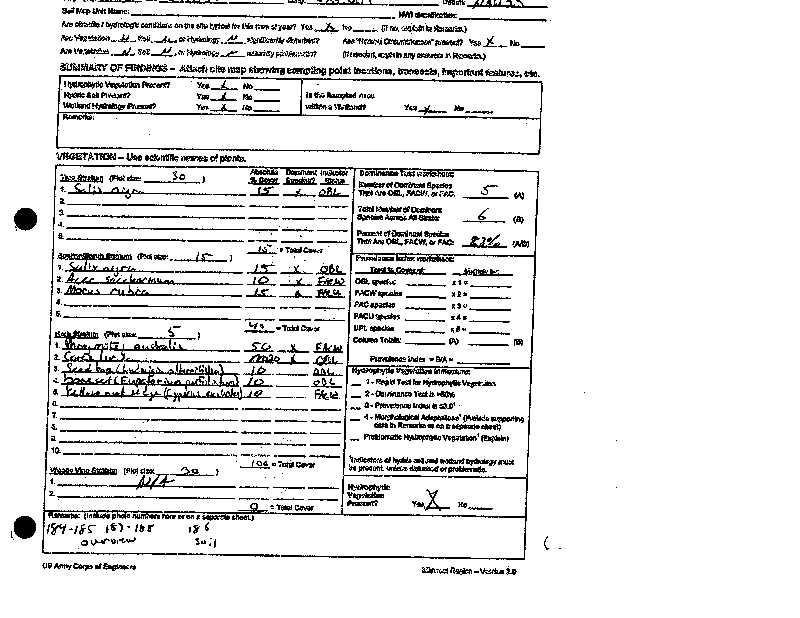 Soil Map Unit Name: NWI classification:
Are climatic / hydrologic conditions on the site typical for this time of year? Yes X No (If no, explain in Remarks.)
Are Vegetation N, Soil N, or Hydrology N significantly disturbed? Are "Normal Circumstances" present? Yes X No
Are Vegetation N, Soil N, or Hydrology N naturally problematic? (If needed, explain any answers in Remarks.)
SUMMARY OF FINDINGS – Attach site map showing sampling point locations, transects, important features, etc.
Hydrophytic Vegetation Present? Yes X No
Hydric Soil Present? Yes X No
Wetland Hydrology Present? Yes X No
Is the Sampled Area
within a Wetland? Yes X No
Remarks:
VEGETATION – Use scientific names of plants.
Tree Stratum (Plot size: 30 )
Absolute % Cover Dominant Species? Indicator Status
1. Salix nigra 15 X OBL
2.
3.
4.
5.
15 = Total Cover
Sapling/Shrub Stratum (Plot size: 15 )
1. Salix nigra 15 X OBL
2. Acer saccharinum 10 X FACW
3. Morus rubra 15 X
4.
5.
40 = Total Cover
Herb Stratum (Plot size: 5 )
1. Phragmites australis 50 X FACW
2. 20 X OBL
3. Seed box (Ludwigia alternifolia) 10 OBL
4. boneset (Eupatorium perfoliatum) 10 OBL
5. Yellow nut sedge (Cyperus esculentus) 10 FACW
6.
7.
8.
9.
10.
100 = Total Cover
Woody Vine Stratum (Plot size: 30 )
1. N/A
2.
0 = Total Cover
Dominance Test worksheet:
Number of Dominant Species
That Are OBL, FACW, or FAC: 5 (A)
Total Number of Dominant
Species Across All Strata: 6 (B)
Percent of Dominant Species
That Are OBL, FACW, or FAC: 83% (A/B)
Prevalence Index worksheet:
Total % Cover of: Multiply by:
OBL species x 1 =
FACW species x 2 =
FAC species x 3 =
FACU species x 4 =
UPL species x 5 =
Column Totals: (A) (B)
Prevalence Index = B/A =
Hydrophytic Vegetation Indicators:
1 - Rapid Test for Hydrophytic Vegetation
2 - Dominance Test is >50%
3 - Prevalence Index is ≤3.0¹
4 - Morphological Adaptations¹ (Provide supporting
data in Remarks or on a separate sheet)
Problematic Hydrophytic Vegetation¹ (Explain)
¹Indicators of hydric soil and wetland hydrology must
be present, unless disturbed or problematic.
Hydrophytic
Vegetation
Present? Yes X No
Remarks: (Include photo numbers here or on a separate sheet.)
184-185 187-188 186
overview soil
US Army Corps of Engineers
Midwest Region – Version 2.0